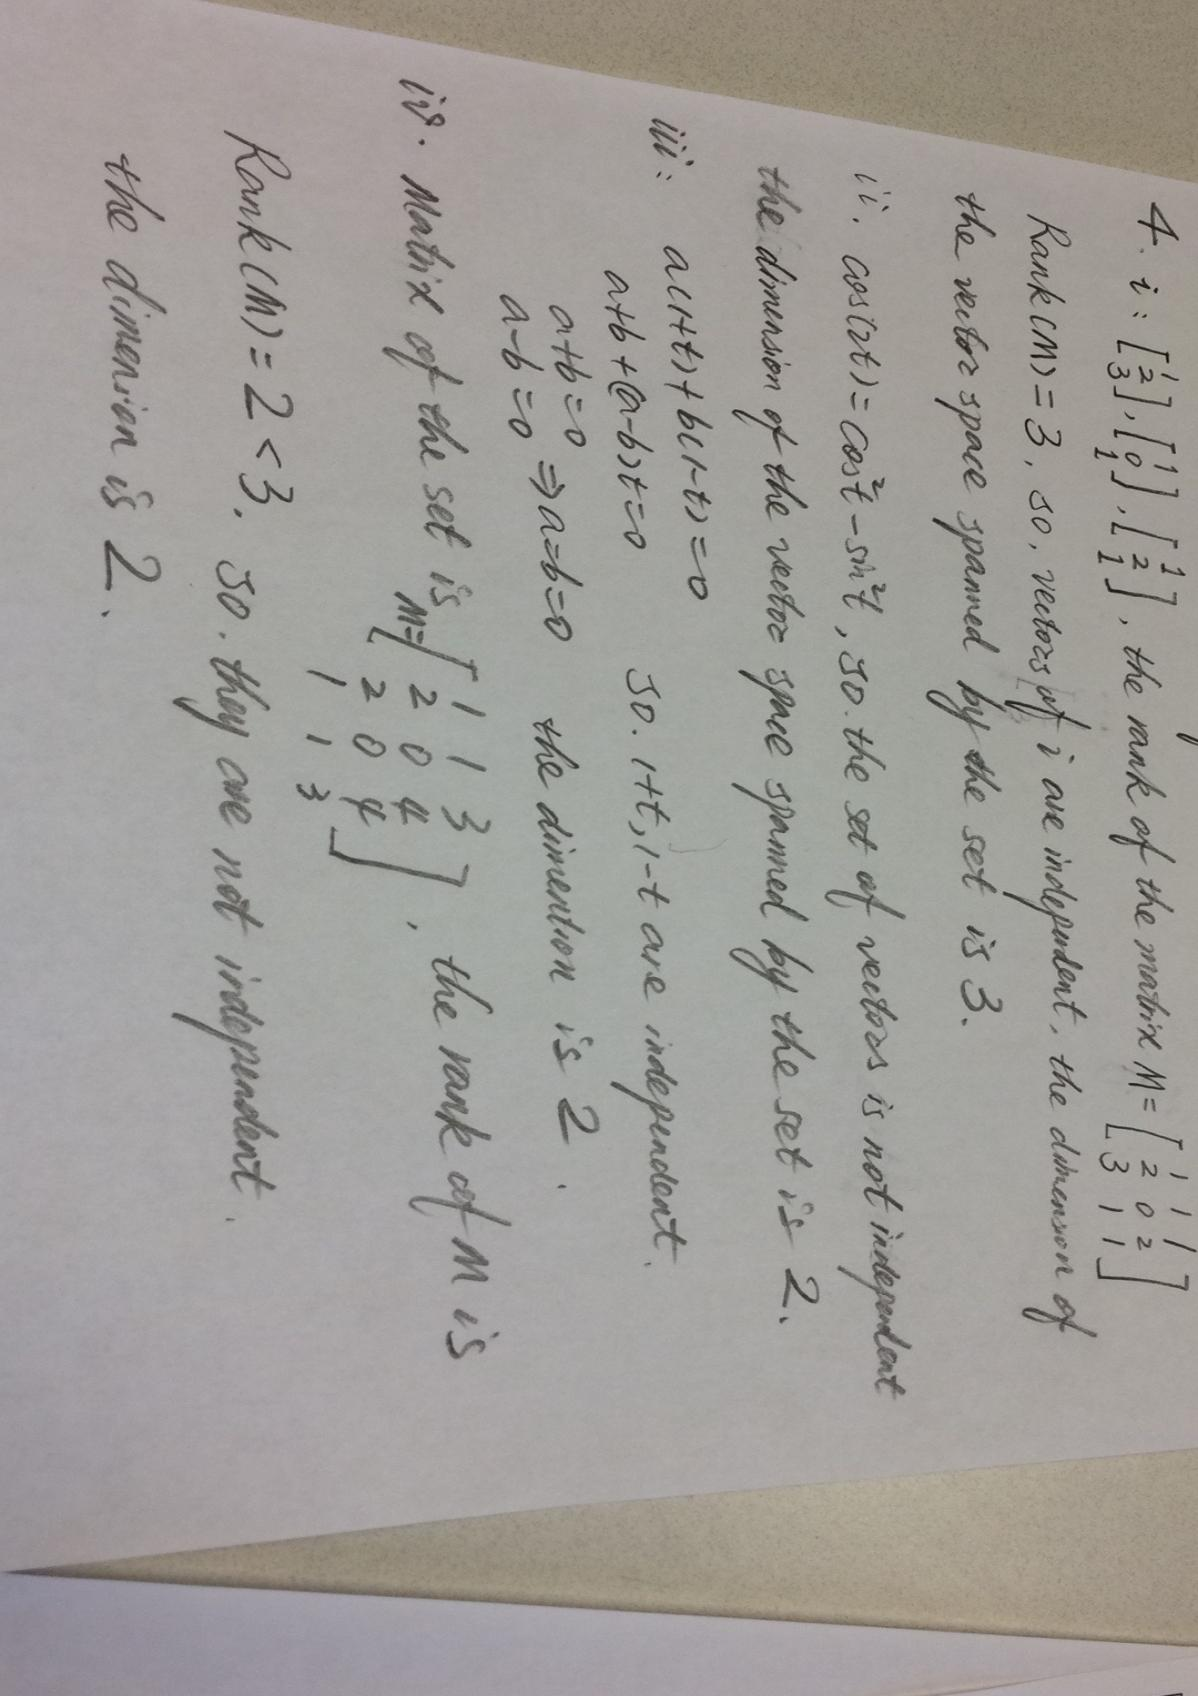 4. i: [1 2 3], [1 0 1], [1 2 1], the rank of the matrix M = [1 1 1
2 0 2
3 1 1]
Rank(M) = 3, so, vectors of i are independent, the dimension of
the vector space spanned by the set is 3.
ii. cos(2t) = cos²t - sin²t, so. the set of vectors is not independent
the dimension of the vector space spanned by the set is 2.
iii: a(1+t) + b(1-t) = 0
a+b + (a-b)t = 0 so. 1+t, 1-t are independent.
a+b=0
a-b=0 ⇒ a=b=0 the dimention is 2.
iv. Matrix of the set is M = [1 1 3
2 0 4
2 0 4
1 1 3], the rank of M is
Rank(M) = 2 < 3, so. they are not independent.
the dimension is 2.